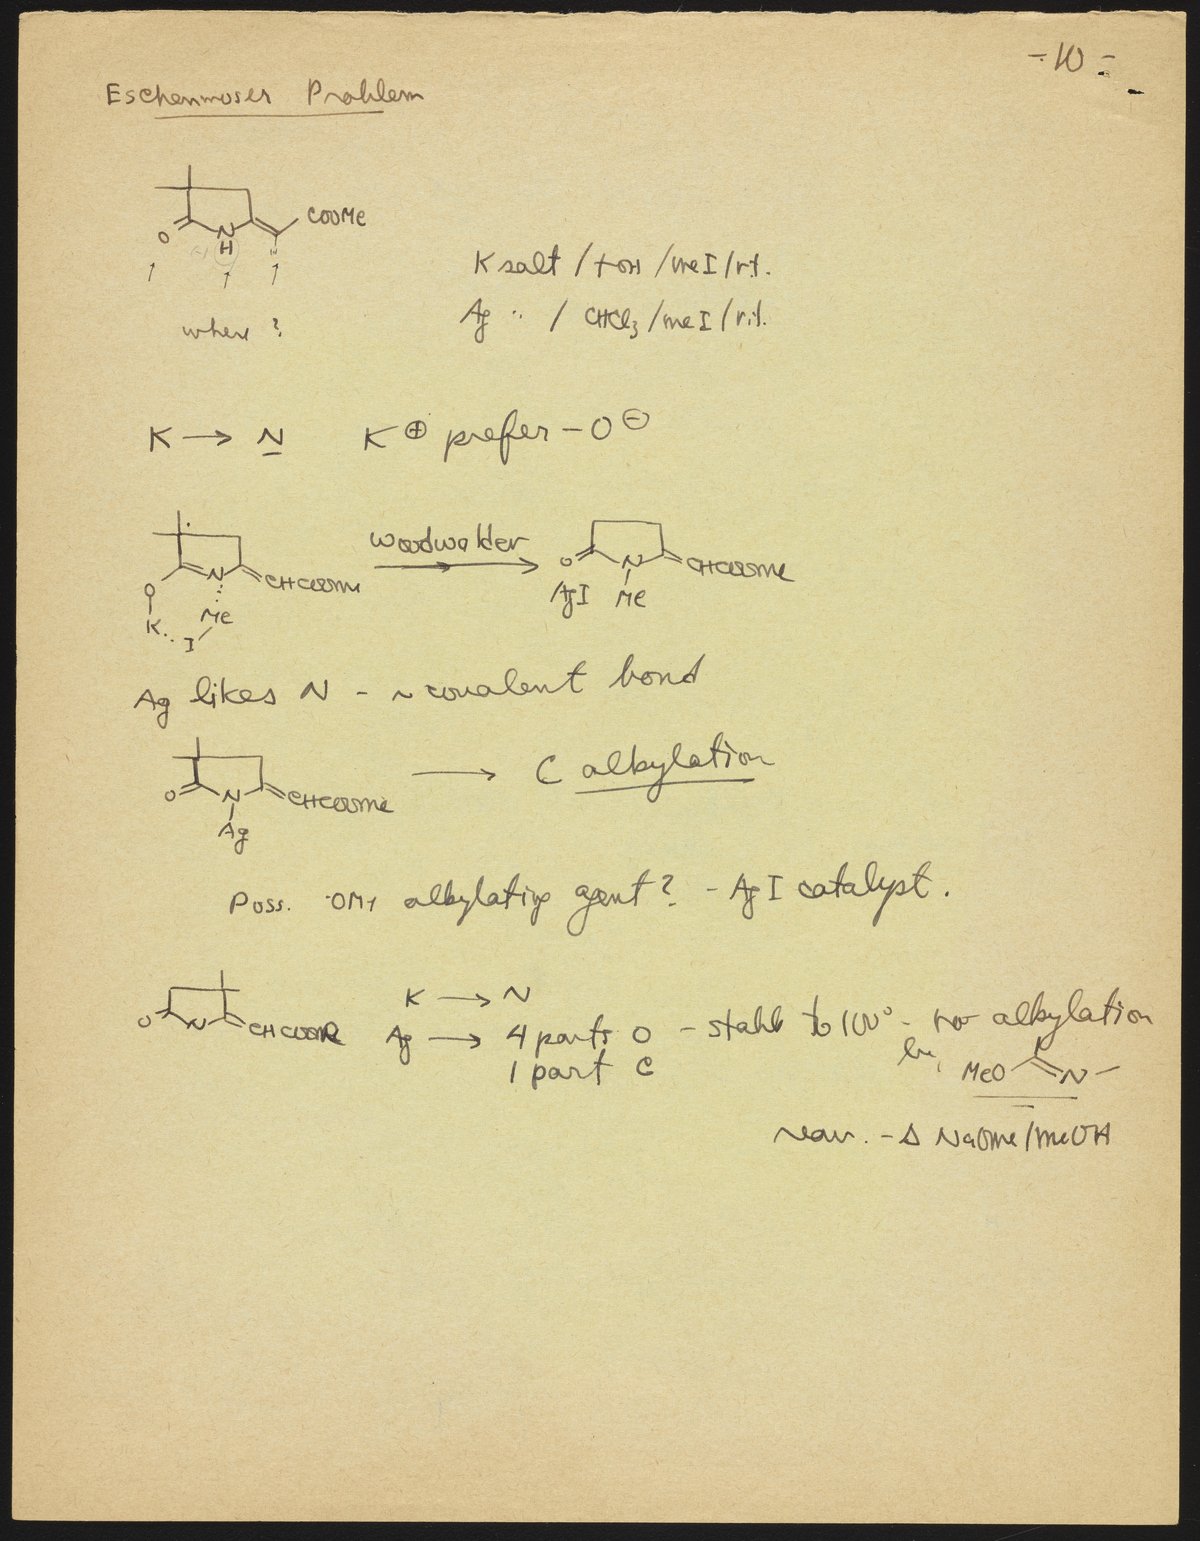 - 10 -
Eschenmoser Problem
COOMe
O N
H
where ?
K salt / +OH / MeI / r.t.
Ag " / CHCl3 / MeI / r.t.
K → N K⊕ prefer - O⊖
woodwalder
O N CHCOOMe
K I Me
O N CHCOOMe
AgI Me
Ag likes N - ~ covalent bond
O N CHCOOMe → C alkylation
Ag
Poss. OMe alkylating agent? - AgI catalyst.
K → N
O N CHCOOR Ag → 4 parts O - stable to 100° - no alkylation
1 part C
MeO N
rear. - Δ NaOMe/MeOH